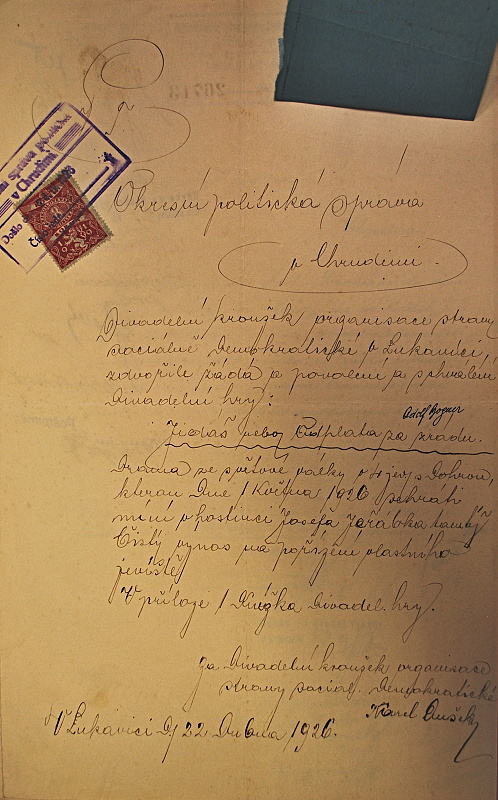 P. T.
Okresní politická správa
v Chrudimi.
Divadelní kroužek organisace strany
sociálně Demokratické v Lukavici,
zdvořile žádá o povolení a schválení
Divadelní hry:
Adolf Bogner
Jidáš neboj Odplata za zradu.
Drama ze světové války v 4 jev. s Dohrou,
kterou Dne 1 Května 1926 sehráti
míní v hostinci Josefa Jeřábka tamtéž
Čistý výnos na pořízení vlastního
jeviště
V příloze 1 Knížka Divadel. hry.
Za Divadelní kroužek organisace
strany social. Demokratické
V Lukavici D 22 Dubna 1926.
Karel Dušek
správa politická
v Chrudimi
Došlo